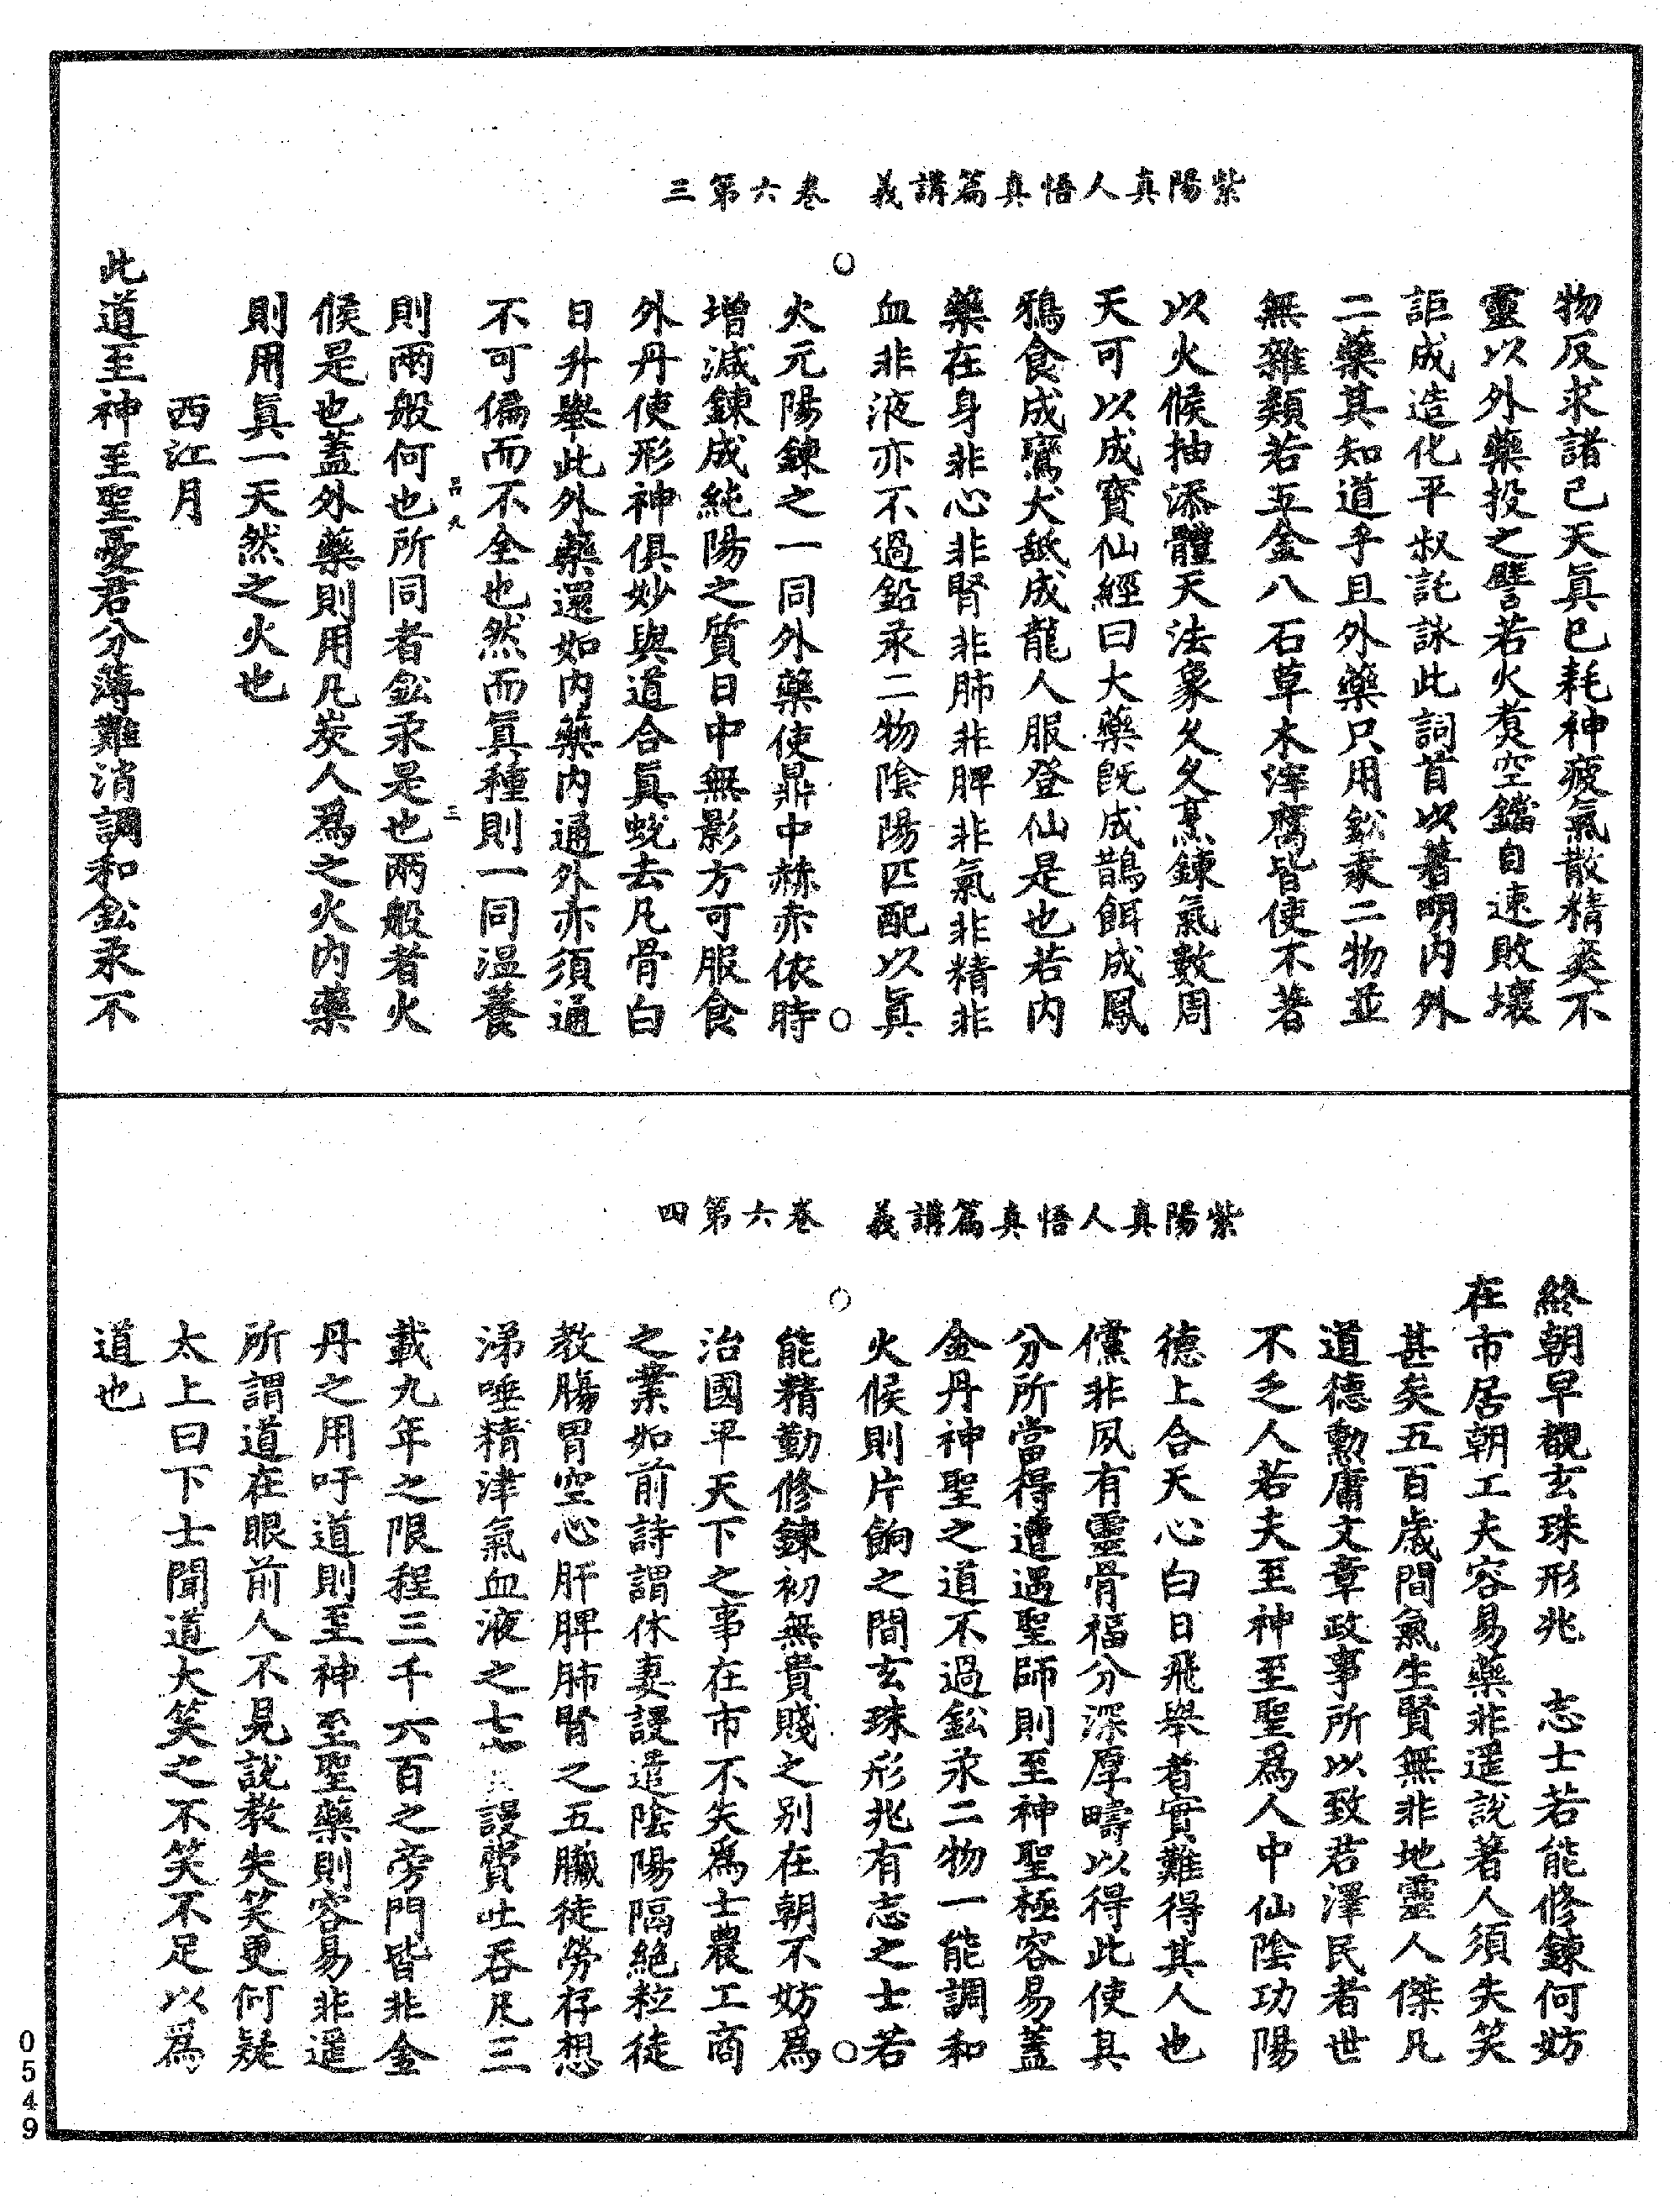 紫陽真人悟真篇講義　卷六第三
物反求諸己天眞已耗神疲氣散精羡不
靈以外藥投之譬若火煑空鐺自速敗壞
詎成造化平叔託詠此詞首以著明內外
二藥其知道乎且外藥只用鈆汞二物並
無雜類若五金八石草木滓腐皆使不著
以火候抽添體天法象久久烹鍊氣數周
天可以成寳仙經曰大藥旣成鵲餌成鳳
鴉食成鸞犬舐成龍人服登仙是也若內
藥在身非心非腎非肺非脾非氣非精非
血非液亦不過鉛汞二物陰陽匹配以眞
火元陽鍊之一同外藥使鼎中赫赤依時
增減鍊成純陽之質日中無影方可服食
外丹使形神俱妙與道合眞蛻去凡骨白
日升舉此外藥還如內藥內通外亦須通
不可偏而不全也然而眞種則一同溫養
則兩般何也所同者鈆汞是也兩般者火
候是也蓋外藥則用凡炭人爲之火內藥
則用眞一天然之火也
西江月
此道至神至聖憂君分薄難消調和鈆汞不
紫陽真人悟真篇講義　卷六第四
終朝早覩玄珠形兆　志士若能修鍊何妨
在市居朝工夫容易藥非遥說著人須失笑
甚矣五百歲間氣生賢無非地靈人傑凡
道德勳庸文章政事所以致君澤民者世
不乏人若夫至神至聖爲人中仙陰功陽
德上合天心白日飛舉者實難得其人也
儻非夙有靈骨福分深厚疇以得此使其
分所當得遭遇聖師則至神聖極容易蓋
金丹神聖之道不過鈆汞二物一能調和
火候則片餉之間玄珠形兆有志之士若
能精勤修鍊初無貴賤之別在朝不妨爲
治國平天下之事在市不失爲士農工商
之業如前詩謂休妻謾遣陰陽隔絶粒徒
教腸胃空心肝脾肺腎之五臟徒勞存想
涕唾精津氣血液之七 謾費吐吞凡三
載九年之限程三千六百之旁門皆非金
丹之用吁道則至神至聖藥則容易非遥
所謂道在眼前人不見說教失笑更何疑
太上曰下士聞道大笑之不笑不足以爲
道也
0549